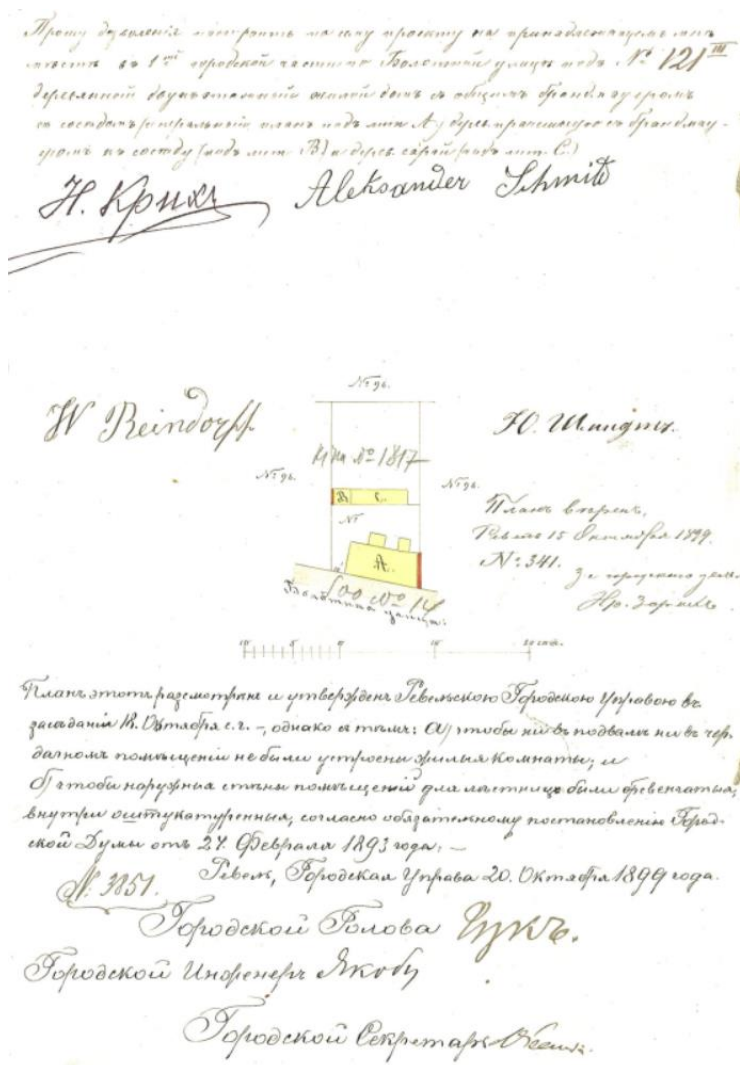 Прошу дозволенія построить по сему проекту на принадлежащемъ мнѣ
мѣстѣ въ 1ой городской части по Болотной улицѣ подъ № 121 III
деревянной двухъэтажный жилой домъ съ общимъ брандмауеромъ
съ сосѣдомъ (генеральный планъ подъ лит. А) и дерев. прачешную съ брандмау-
еромъ къ сосѣду (подъ лит. В) и дерев. сарай (подъ лит. С.)
Aleksander Schmidt
W Reindorff
Ю. Шмидтъ.
№ 96.
№ 1817
№ 96.
№ 96.
B.
C.
№
A.
Планъ вѣренъ,
Ревель 15 Октября 1899.
№ 341.
Болотная улица.
20 саж.
Планъ этотъ разсмотрѣнъ и утвержденъ Ревельскою Городскою Управою въ
засѣданіи 18. Октября с. г. –, однако съ тѣмъ: а) чтобы ни въ подвалѣ ни въ чер-
дачномъ помѣщеніи не были устроены жилыя комнаты; и
б) чтобы наружныя стѣны помѣщеній для лѣстницъ были бревенчатыя,
внутри оштукатуренныя, согласно обязательному постановленію Город-
ской Думы отъ 27. Февраля 1893 года. –
Ревель, Городская Управа 20. Октября 1899 года.
№ 3851.
Городской Голова
Городской Инженеръ Якоби
Городской Секретарь